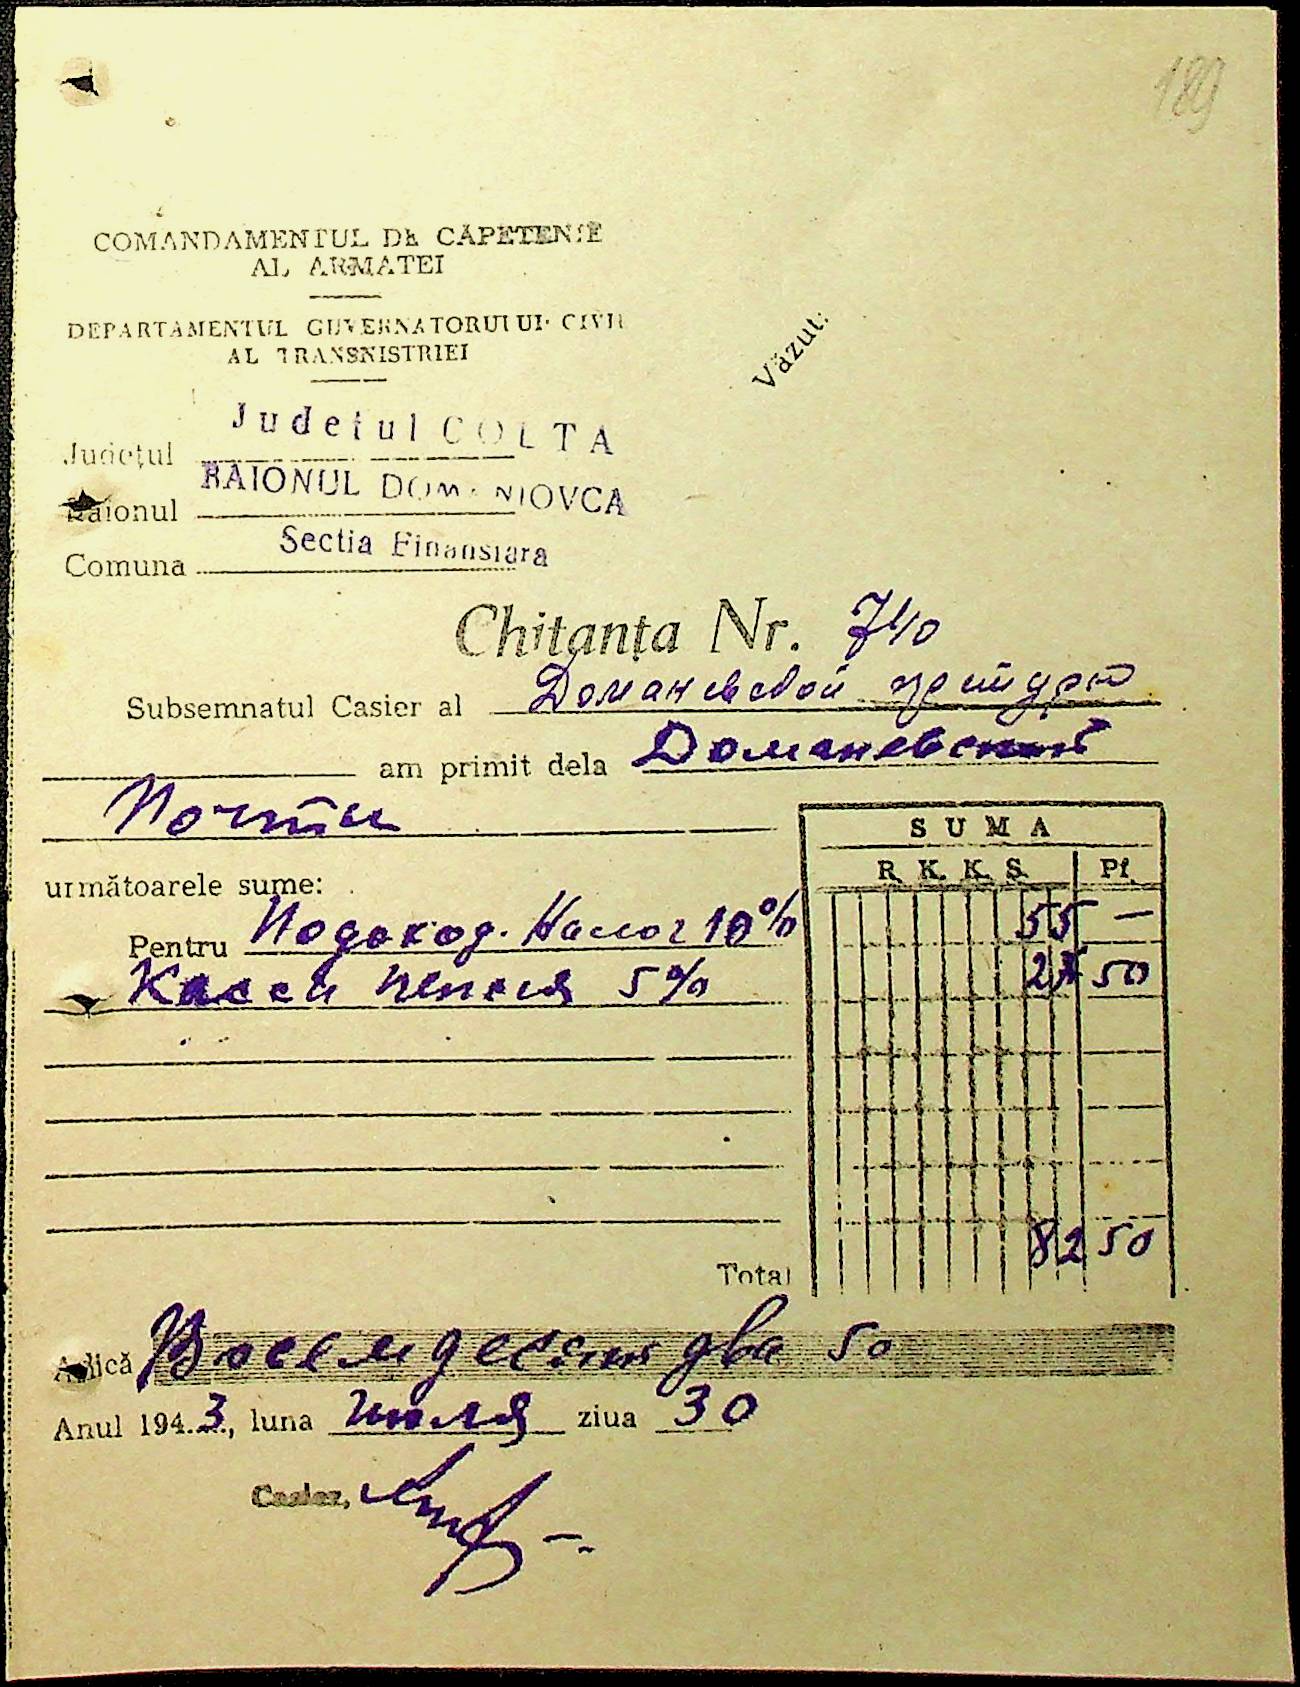 189
COMANDAMENTUL DE CAPETENIE
AL ARMATEI
DEPARTAMENTUL GUVERNATORULUI CIVIL
AL TRANSNISTRIEI
Văzut:
Județul Judetul COLTA
Raionul RAIONUL DOMANIOVCA
Comuna Sectia Finansiara
Chitanța Nr. 740
Subsemnatul Casier al Доманевской претуры
am primit dela Доманевской
Почты
SUMA
R. K. K. S. Pf.
următoarele sume:
Pentru Подоход. Налог 10% 55 —
Кассы пенсия 5% 27 50
Total 82 50
Adică Восемдесят два 50
Anul 1943, luna июля ziua 30
Casier,